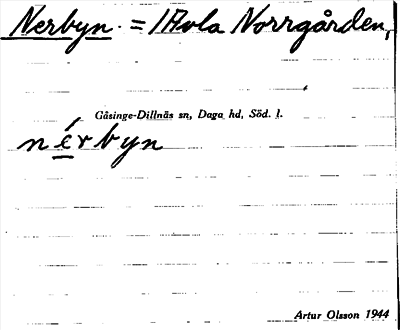 Nerbyn. = Norrgården,
Gåsinge-Dillnäs sn, Daga hd, Söd. l.
nérbyn
Artur Olsson 1944